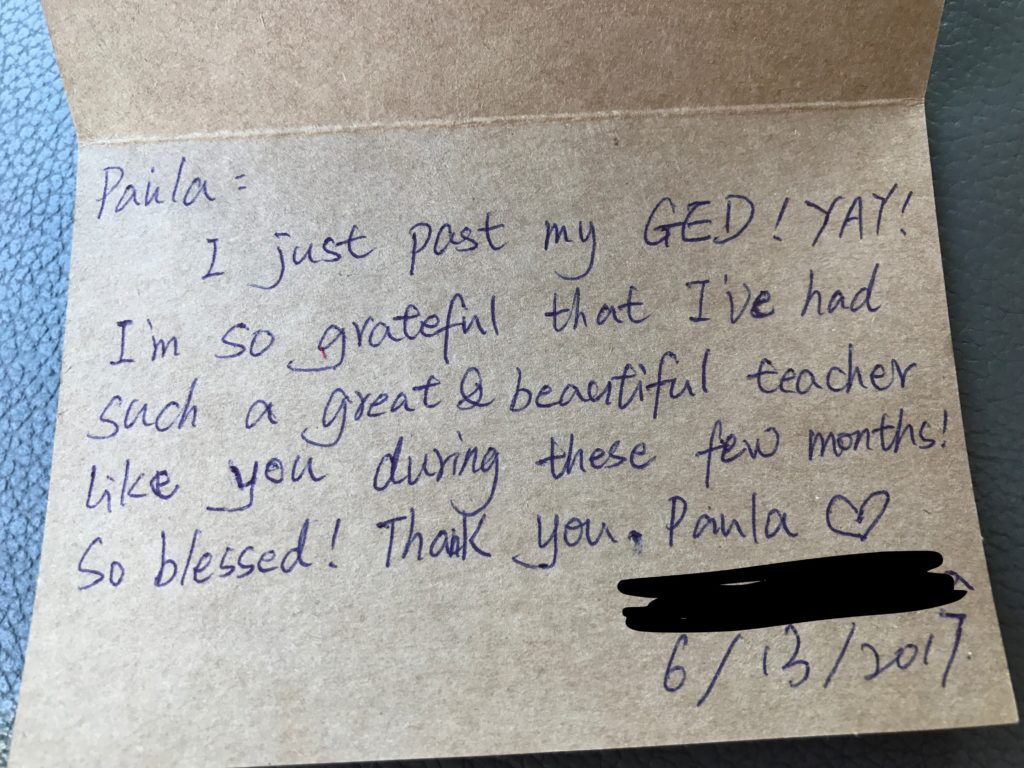 Paula:
I just past my GED! YAY!
I'm so grateful that I've had
such a great & beautiful teacher
like you during these few months!
So blessed! Thank you. Paula ♡
6/13/2017.